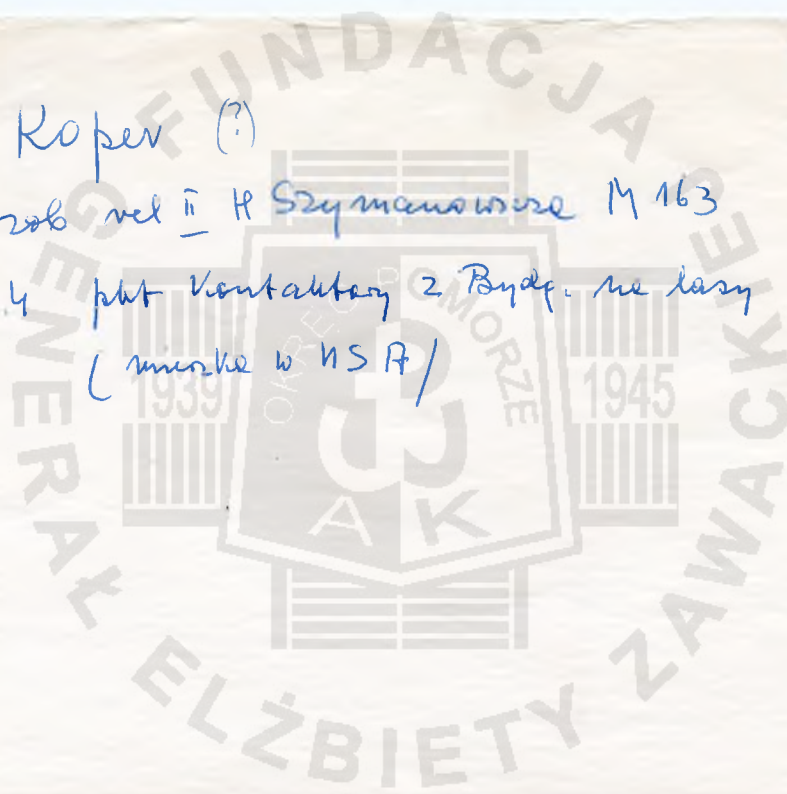 Koper (?)
zob rel II H Szymanowicza M 163
4 pkt Kontaktowy z Bydg. na lasy
(mieszka w USA)
FUNDACJA GENERAŁ ELŻBIETY ZAWACKIEJ
OKRĘG POMORZE
1939
1945
AK